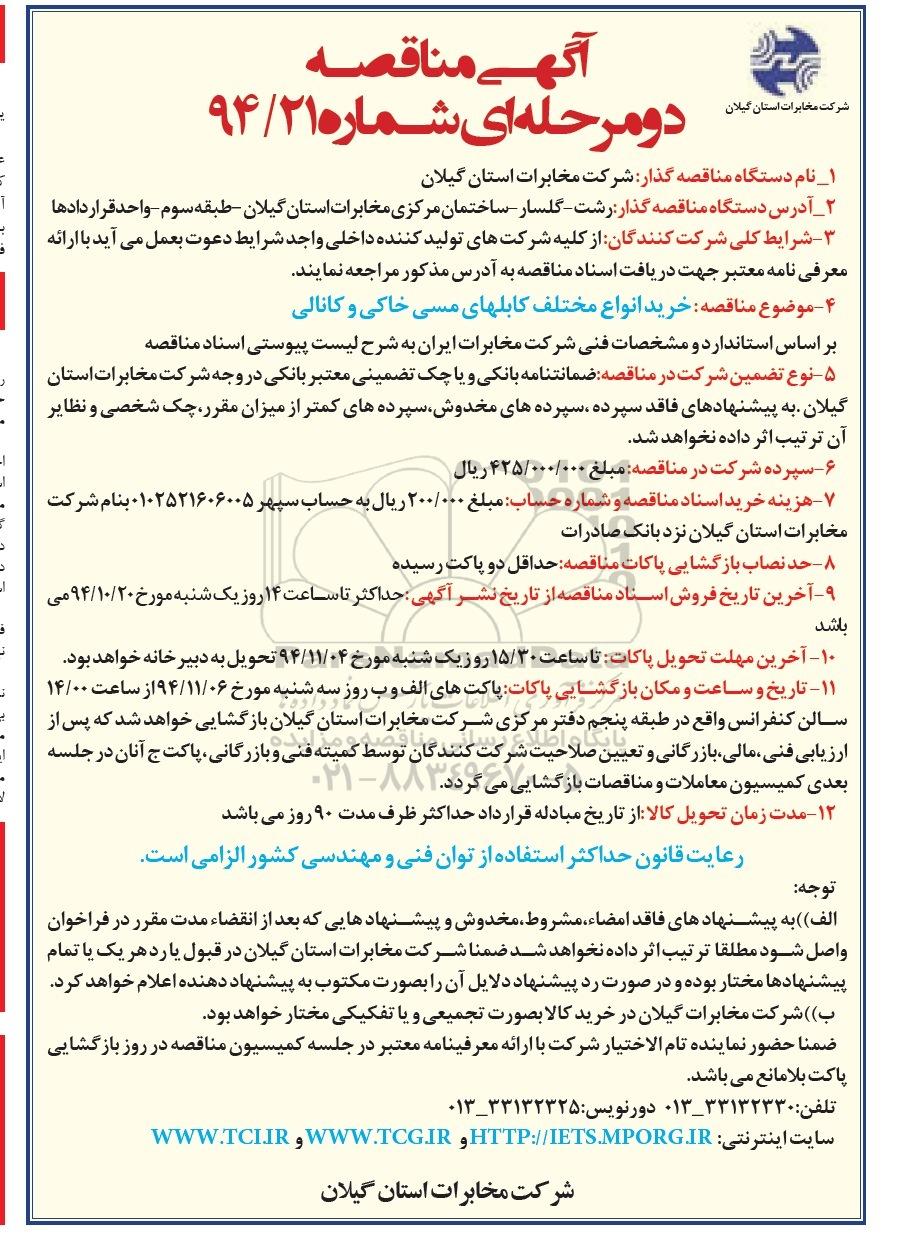 شرکت مخابرات استان گیلان
آگهی مناقصه
دو مرحله‌ای شماره ۹۴/۲۱
۱_نام دستگاه مناقصه گذار: شرکت مخابرات استان گیلان
۲_آدرس دستگاه مناقصه گذار:رشت-گلسار-ساختمان مرکزی مخابرات استان گیلان-طبقه سوم-واحدقراردادها
۳-شرایط کلی شرکت کنندگان: از کلیه شرکت های تولید کننده داخلی واجد شرایط دعوت بعمل می آید با ارائه
معرفی نامه معتبر جهت دریافت اسناد مناقصه به آدرس مذکور مراجعه نمایند.
۴-موضوع مناقصه: خرید انواع مختلف کابلهای مسی خاکی و کانالی
بر اساس استاندارد و مشخصات فنی شرکت مخابرات ایران به شرح لیست پیوستی اسناد مناقصه
۵-نوع تضمین شرکت در مناقصه:ضمانتنامه بانکی و یا چک تضمینی معتبر بانکی در وجه شرکت مخابرات استان
گیلان .به پیشنهادهای فاقد سپرده ،سپرده های مخدوش،سپرده های کمتر از میزان مقرر،چک شخصی و نظایر
آن ترتیب اثر داده نخواهد شد.
۶-سپرده شرکت در مناقصه: مبلغ ۴۲۵/۰۰۰/۰۰۰ ریال
۷-هزینه خرید اسناد مناقصه و شماره حساب: مبلغ ۲۰۰/۰۰۰ ریال به حساب سپهر ۰۱۰۲۵۲۱۶۰۶۰۰۵ بنام شرکت
مخابرات استان گیلان نزد بانک صادرات
۸-حد نصاب بازگشایی پاکات مناقصه:حداقل دو پاکت رسیده
۹-آخرین تاریخ فروش اسناد مناقصه از تاریخ نشر آگهی:حداکثر تا ساعت ۱۴روز یک شنبه مورخ ۹۴/۱۰/۲۰می
باشد
۱۰- آخرین مهلت تحویل پاکات: تا ساعت ۱۵/۳۰ روز یک شنبه مورخ ۹۴/۱۱/۰۴ تحویل به دبیرخانه خواهد بود.
۱۱- تاریخ و ساعت و مکان بازگشایی پاکات:پاکت های الف و ب روز سه شنبه مورخ ۹۴/۱۱/۰۶از ساعت ۱۴/۰۰
سالن کنفرانس واقع در طبقه پنجم دفتر مرکزی شرکت مخابرات استان گیلان بازگشایی خواهد شد که پس از
ارزیابی فنی ،مالی،بازرگانی و تعیین صلاحیت شرکت کنندگان توسط کمیته فنی و بازرگانی، پاکت ج آنان در جلسه
بعدی کمیسیون معاملات و مناقصات بازگشایی می گردد.
۱۲-مدت زمان تحویل کالا:از تاریخ مبادله قرارداد حداکثر ظرف مدت ۹۰ روز می باشد
رعایت قانون حداکثر استفاده از توان فنی و مهندسی کشور الزامی است.
توجه:
الف))به پیشنهاد های فاقد امضاء،مشروط،مخدوش و پیشنهاد هایی که بعد از انقضاء مدت مقرر در فراخوان
واصل شود مطلقا ترتیب اثر داده نخواهد شد ضمنا شرکت مخابرات استان گیلان در قبول یا رد هر یک یا تمام
پیشنهادها مختار بوده و در صورت رد پیشنهاد دلایل آن را بصورت مکتوب به پیشنهاد دهنده اعلام خواهد کرد.
ب))شرکت مخابرات گیلان در خرید کالا بصورت تجمیعی و یا تفکیکی مختار خواهد بود.
ضمنا حضور نماینده تام الاختیار شرکت با ارائه معرفینامه معتبر در جلسه کمیسیون مناقصه در روز بازگشایی
پاکت بلامانع می باشد.
تلفن:۳۳۱۳۲۳۳۰_۰۱۳ دورنویس:۳۳۱۳۲۳۲۵_۰۱۳
سایت اینترنتی: HTTP://IETS.MPORG.IR و WWW.TCG.IR و WWW.TCI.IR
شرکت مخابرات استان گیلان